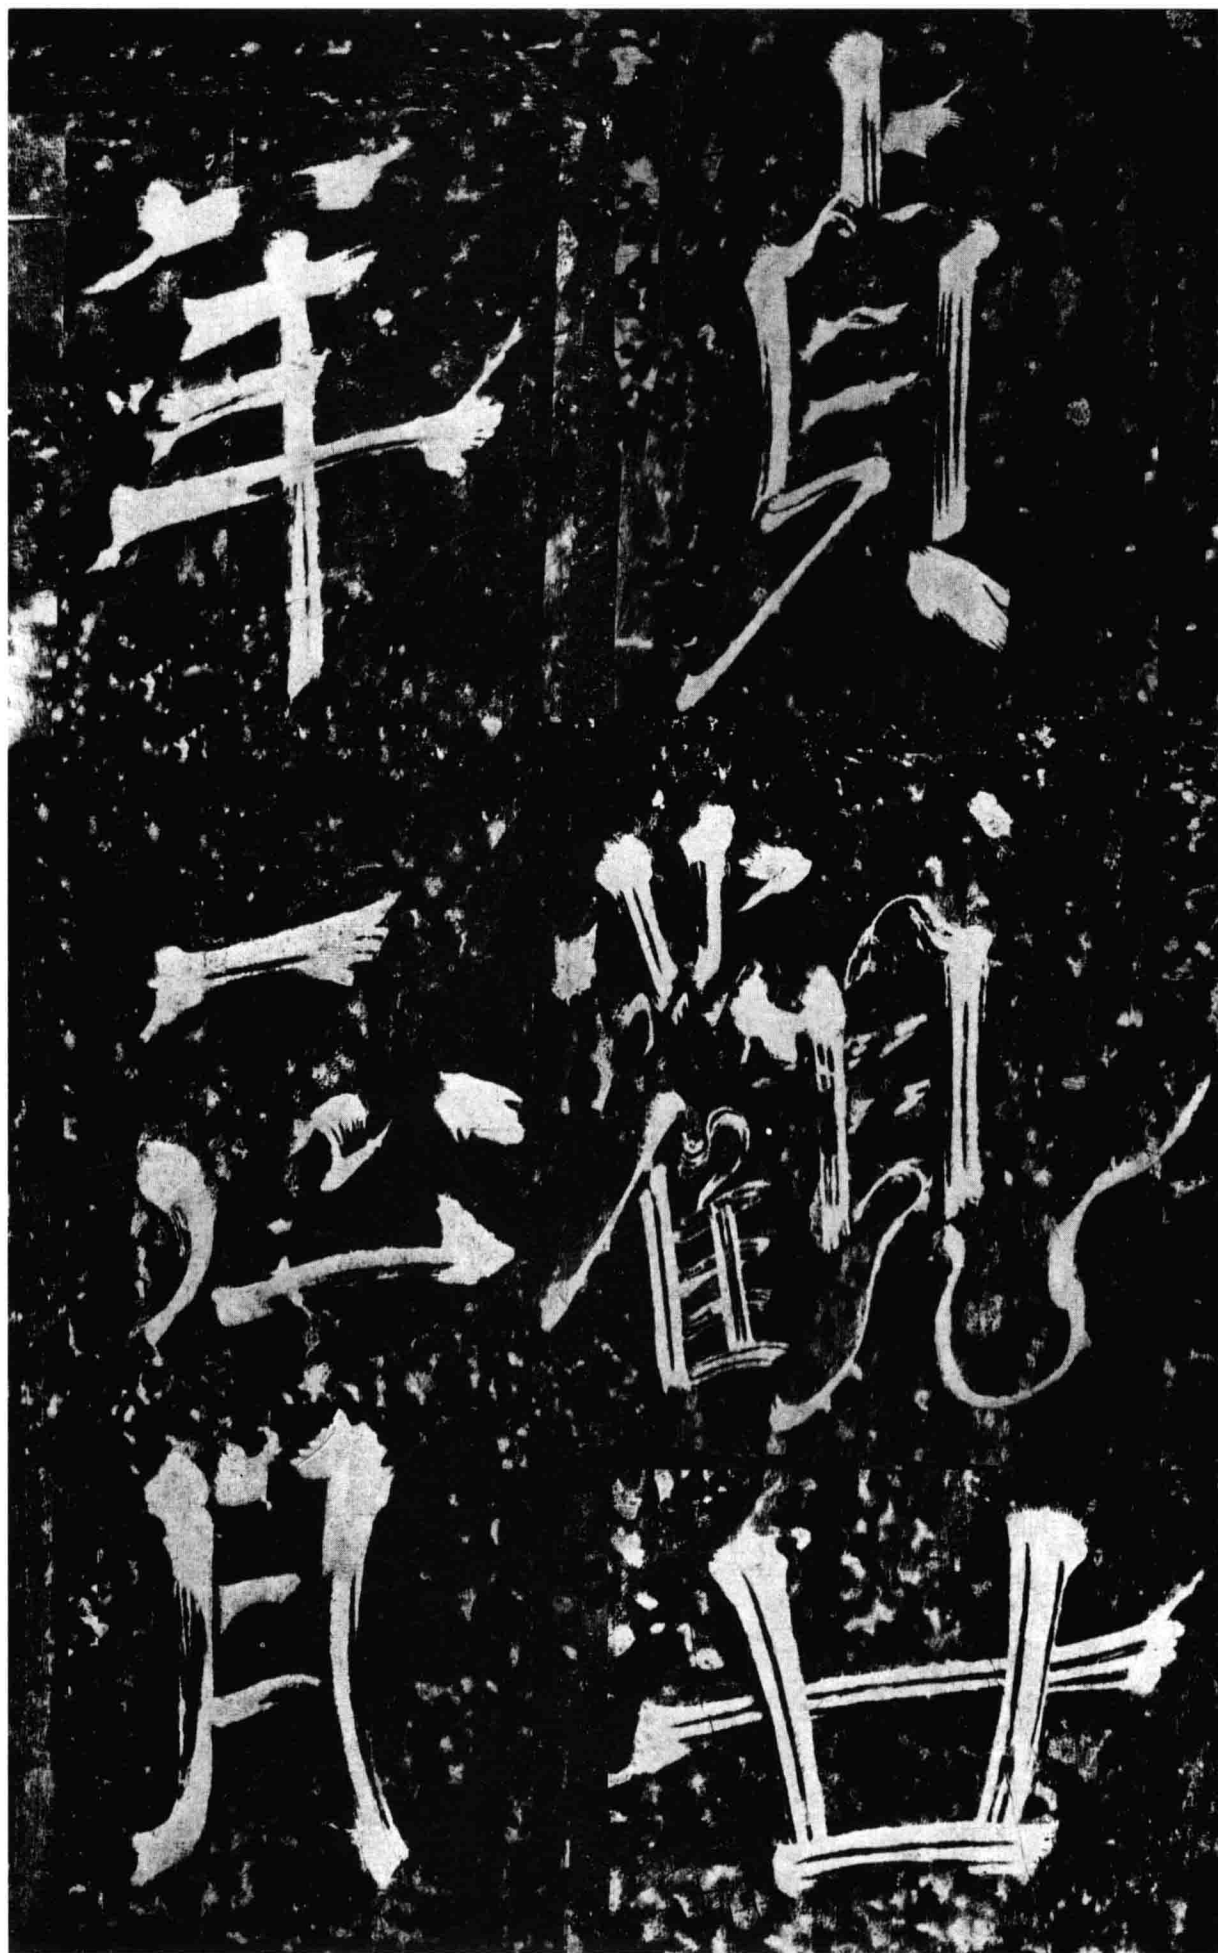 貞觀廿
年正月